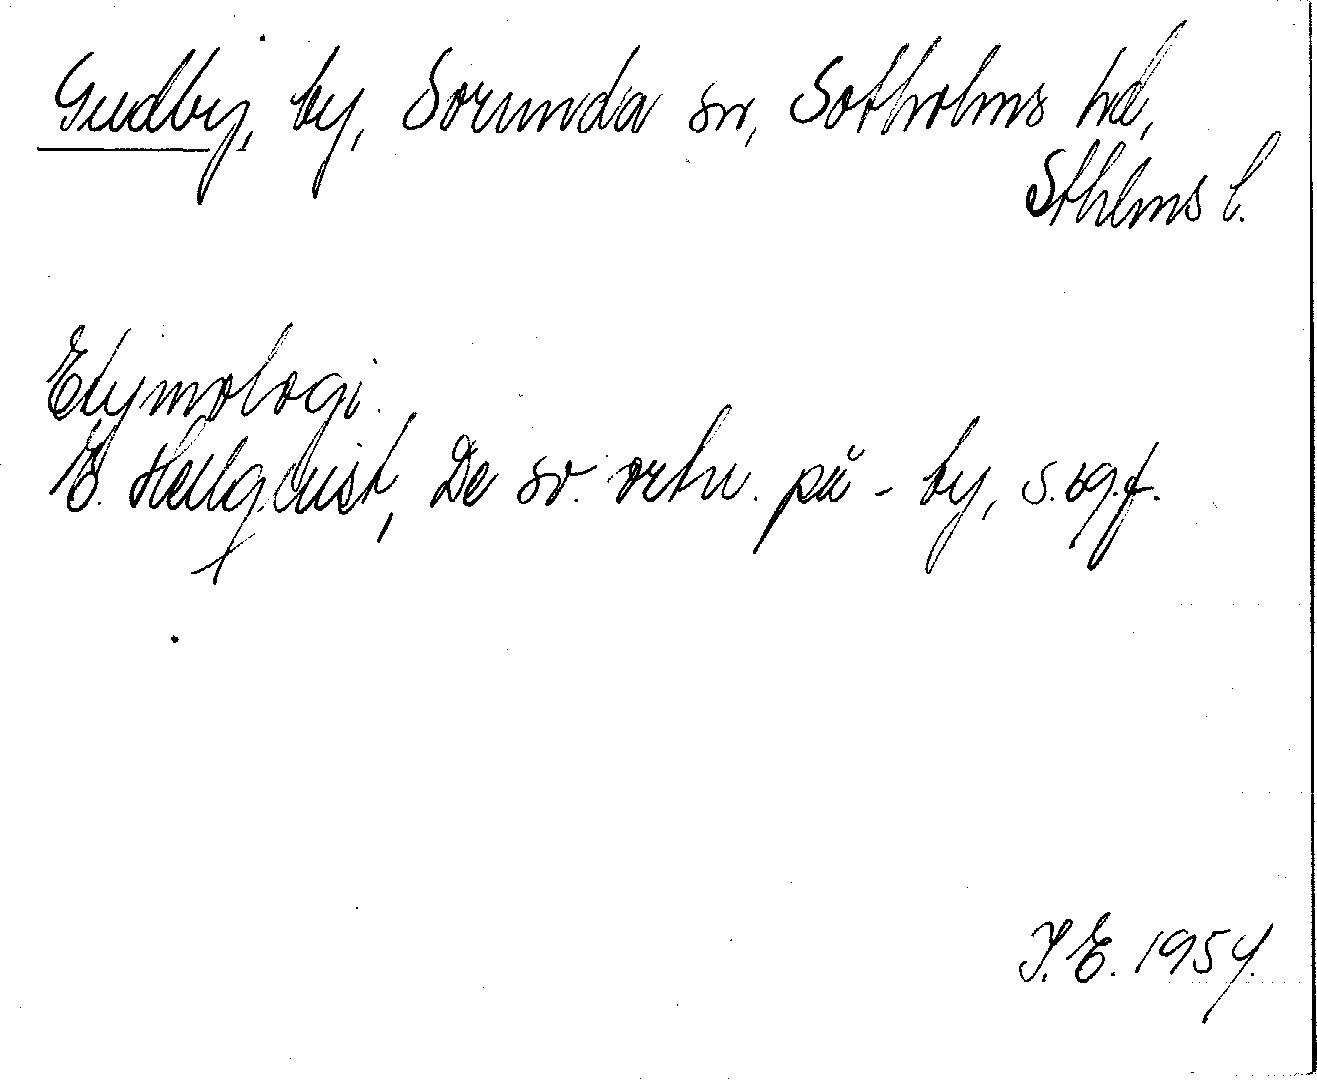 Gudby, by, Sorunda sn, Sotholms hd,
Sthlms l.
Etymologi.
E. Hellquist, De sv. ortn. på -by, s. 69.f.
I.E. 1954.